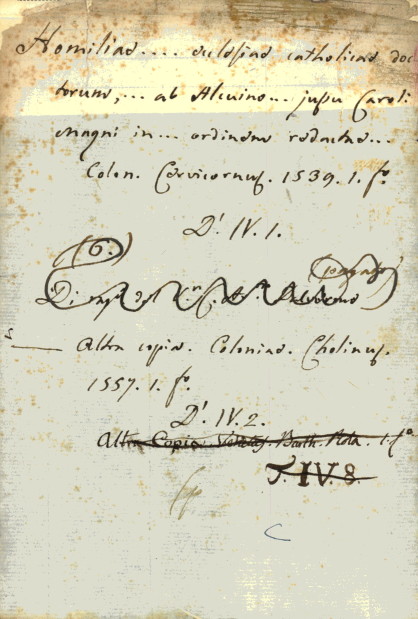 Homiliae .... eclesiae catholicae doc
torum, ... ab Alcuino ... jussu Caroli
Magni in ... ordinem redactae ...
Colon. Cervicornus. 1539. 1. fo.
D'. IV. 1.
(6.)
(pagato)
Altra copia. Coloniae. Cholinus.
1557. 1. fo.
D'. IV. 2.
Altra Copia Barth. Rota. 1. fo
T. IV. 8